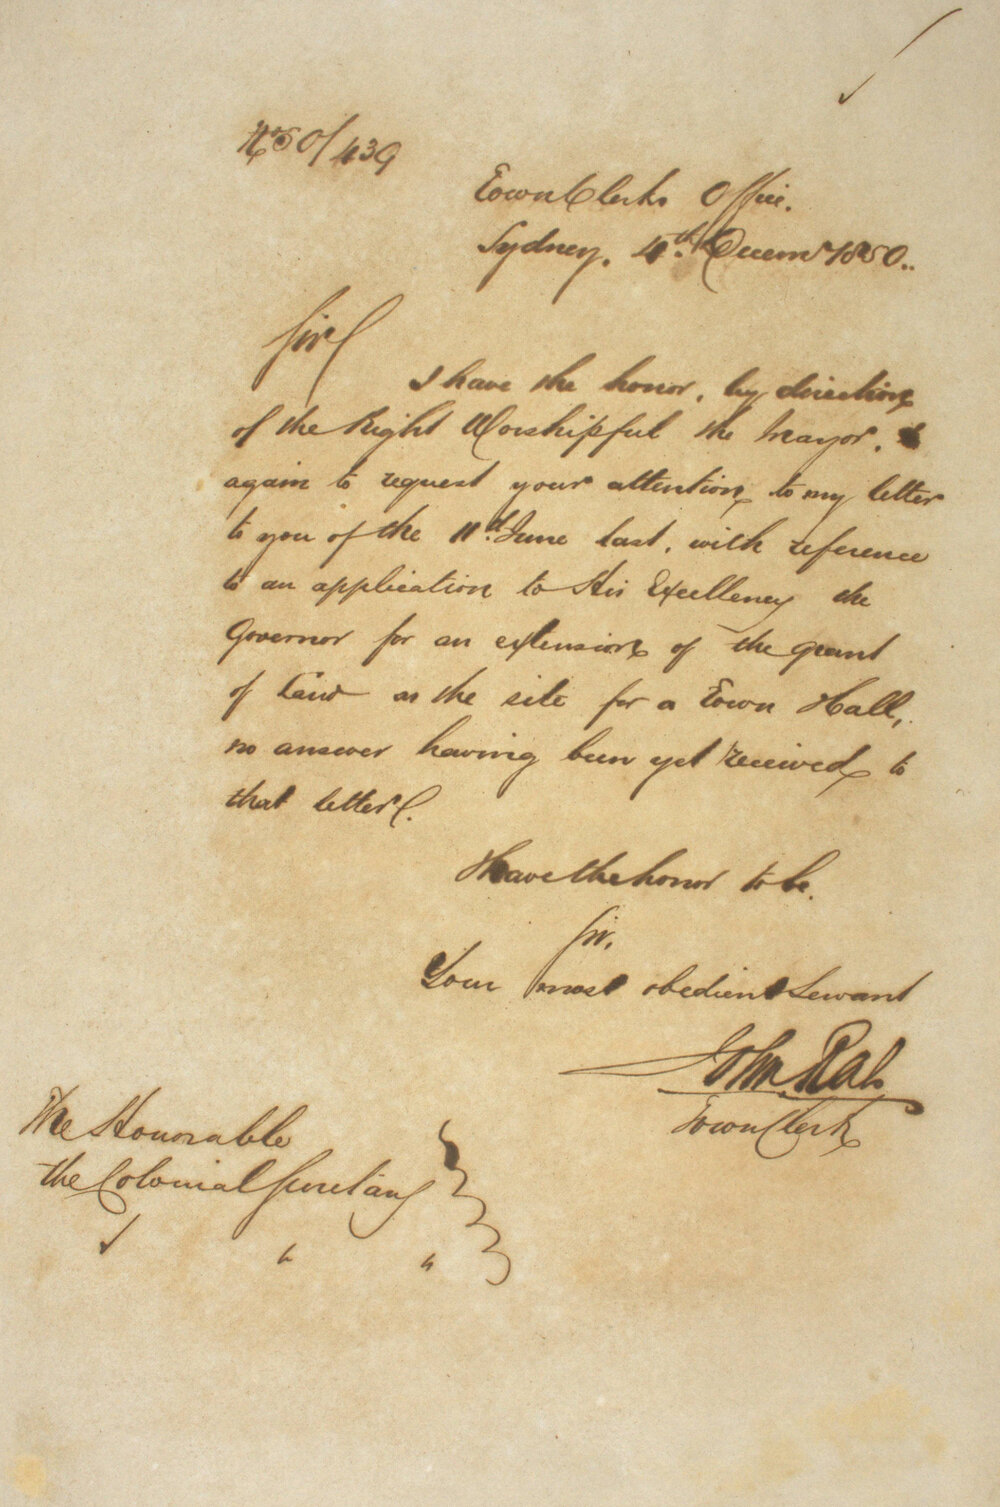 No 50/439
Town Clerks Office.
Sydney. 4th. Decemr 1850..
Sir
I have the honor, by direction
of the Right Worshipful the Mayor,
again to request your attention to my letter
to you of the 11th. June last, with reference
to an application to His Excellency the
Governor for an extension of the grant
of Land as the site for a Town Hall,
no answer having been yet received to
that letter.
I have the honor to be.
Sir,
Your most obedient Servant
John Rae
Town Clerk
The Honorable
the Colonial Secretary